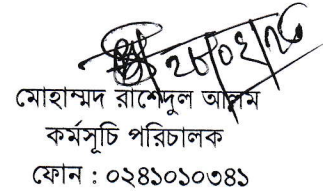 ২৮/০২/২৪
মোহাম্মদ রাশেদুল আলম
কর্মসূচি পরিচালক
ফোন : ০২৪১০১০৩৪১